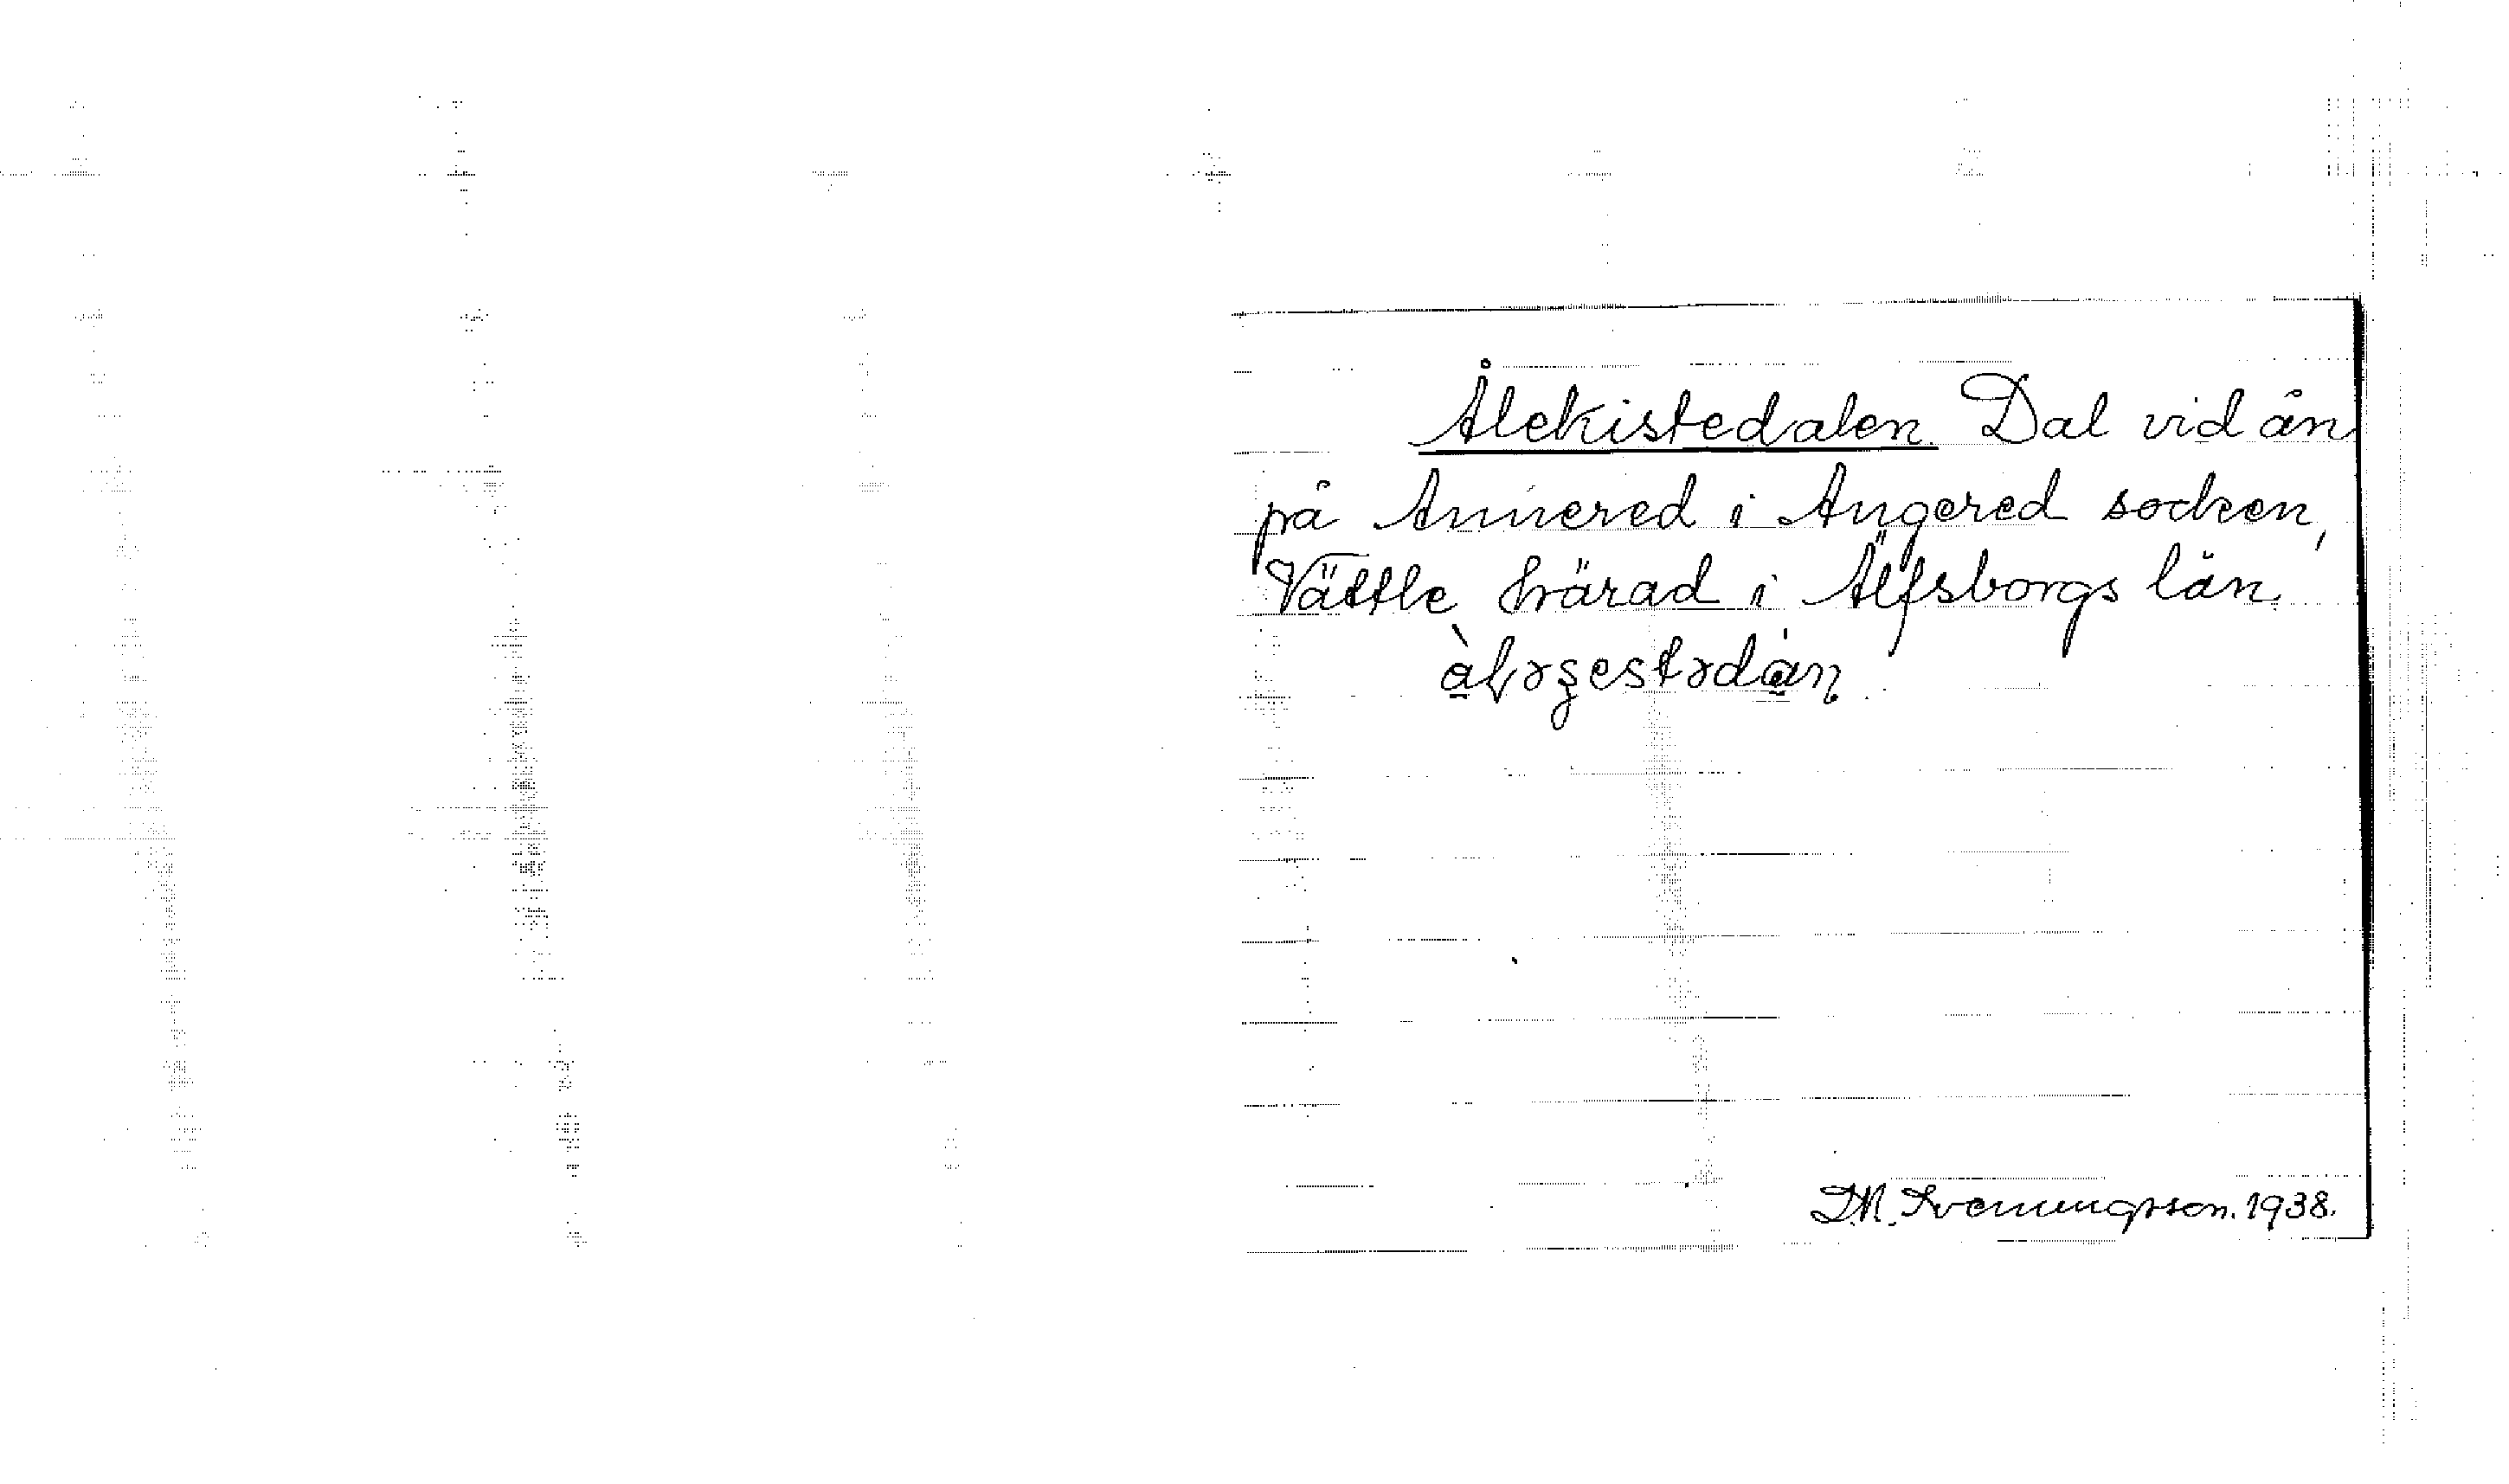 Ålekistedalen. Dal vid ån
på Annered i Angered socken,
Vättle härad i Älfsborgs län.
D.M. Svenungsson. 1938.